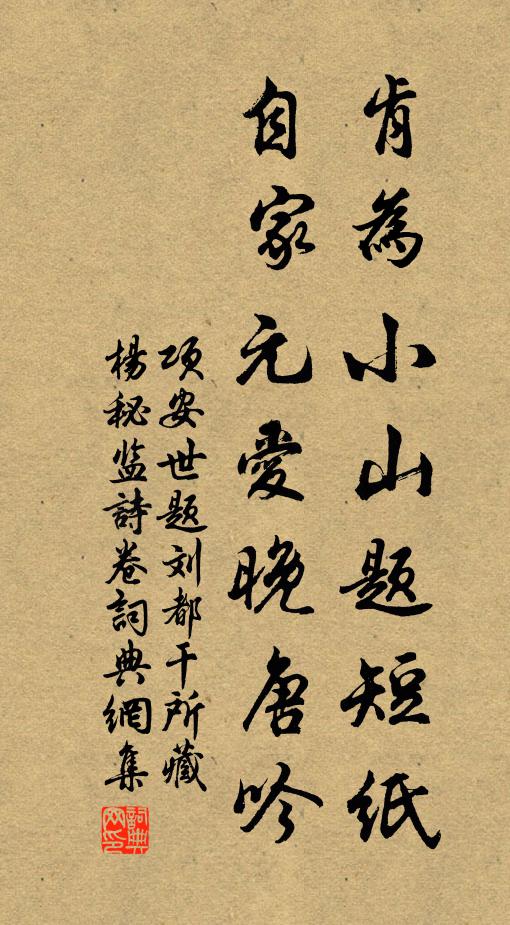 肯為小山题短紙
自家元愛晚唐吟
项安世题刘都干所藏
楊秘监詩卷詞典網集
詞典网印